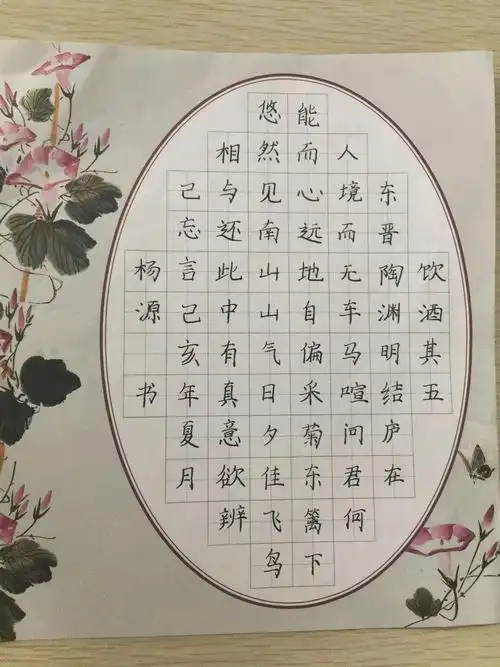 饮酒其五
东晋陶渊明结庐在
人境而无车马喧问君何
能而心远地自偏采菊东篱下
悠然见南山山气日夕佳飞鸟
相与还此中有真意欲辨
己忘言己亥年夏月
杨源书